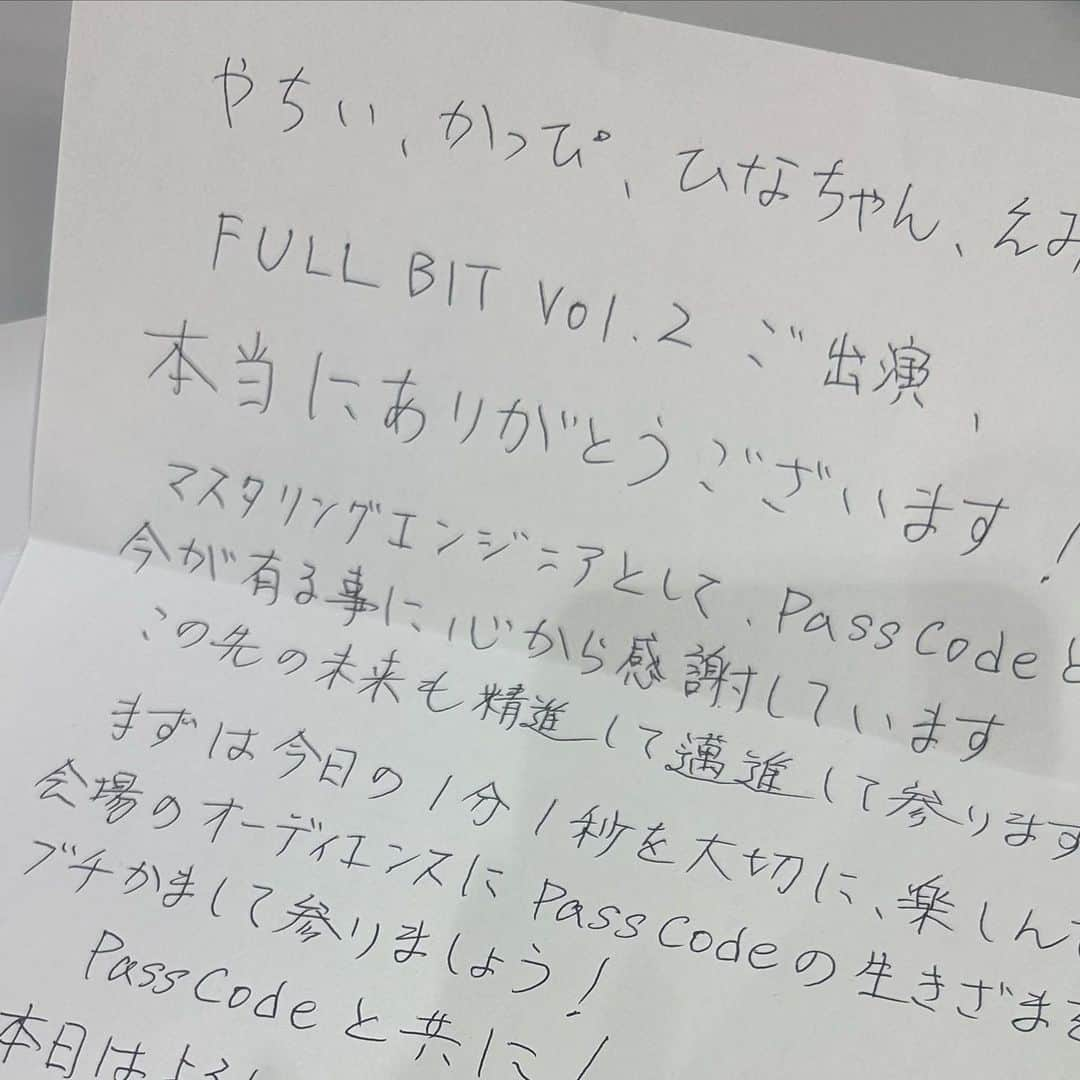 やちい、かっぴ、ひなちゃん、えみ
FULL BIT Vol.2 ご出演、
本当にありがとうございます!
マスタリングエンジニアとして、PassCodeと
今が有る事に心から感謝しています
この先の未来も精進して邁進して参ります
まずは今日の1分1秒を大切に、楽しんで
会場のオーディエンスにPassCodeの生きざまを
ブチかまして参りましょう!
PassCodeと共に!
本日はよろ